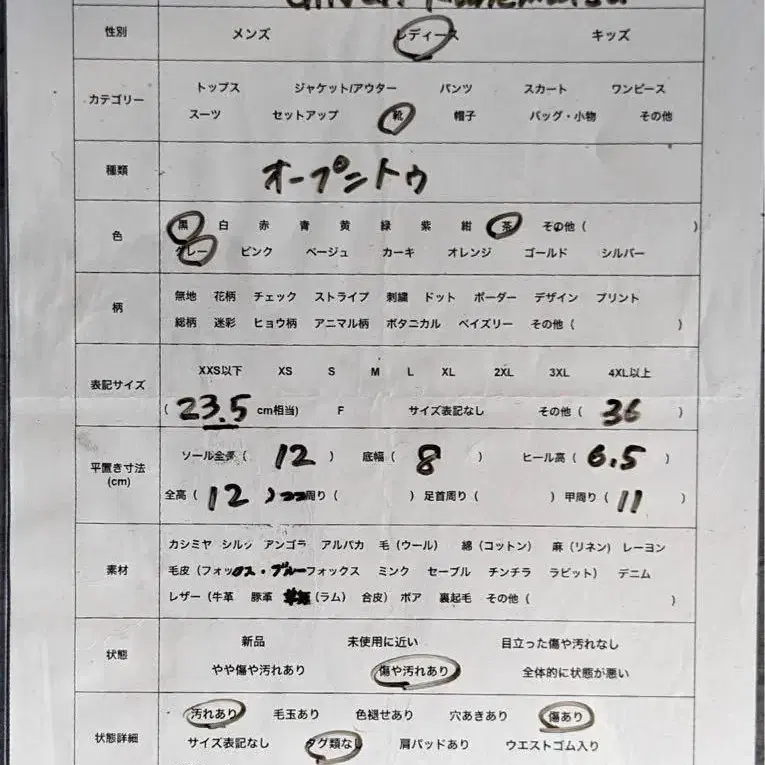 性別 メンズ レディース キッズ
カテゴリー トップス ジャケット/アウター パンツ スカート ワンピース
スーツ セットアップ 靴 帽子 バッグ・小物 その他
種類 オープントウ
色 黒 白 赤 青 黄 緑 紫 紺 茶 その他 ( )
グレー ピンク ベージュ カーキ オレンジ ゴールド シルバー
柄 無地 花柄 チェック ストライプ 刺繍 ドット ボーダー デザイン プリント
総柄 迷彩 ヒョウ柄 アニマル柄 ボタニカル ペイズリー その他 ( )
表記サイズ XXS以下 XS S M L XL 2XL 3XL 4XL以上
( 23.5 cm相当) F サイズ表記なし その他 ( 36 )
平置き寸法 (cm) ソール全長 ( 12 ) 底幅 ( 8 ) ヒール高 ( 6.5 )
全高 ( 12 ) 周り ( ) 足首周り ( ) 甲周り ( 11 )
素材 カシミヤ シルク アンゴラ アルパカ 毛 (ウール) 綿 (コットン) 麻 (リネン) レーヨン
毛皮 (フォックス・ブルーフォックス ミンク セーブル チンチラ ラビット) デニム
レザー (牛革 豚革 (ラム) 合皮) ボア 裏起毛 その他 ( )
状態 新品 未使用に近い 目立った傷や汚れなし
やや傷や汚れあり 傷や汚れあり 全体的に状態が悪い
状態詳細 汚れあり 毛玉あり 色褪せあり 穴あきあり 傷あり
サイズ表記なし タグ類なし 肩パッドあり ウエストゴム入り